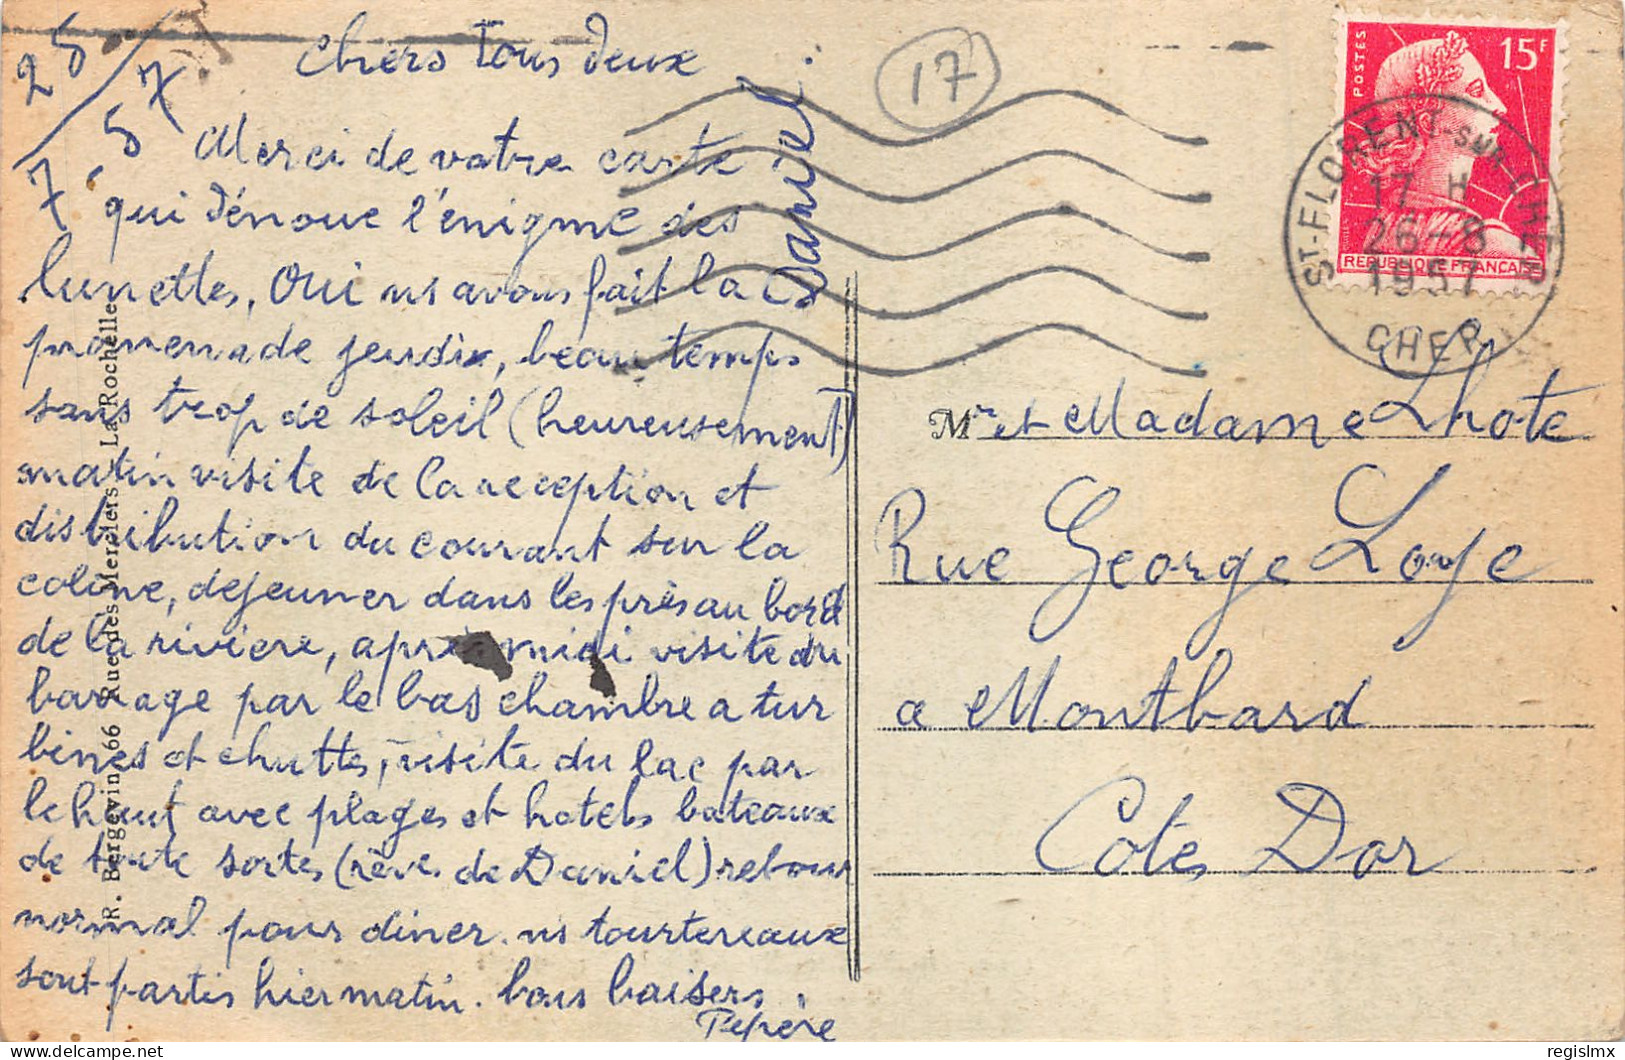 25/7
7-57
Chers Tous deux
Merci de votre carte
qui dénoue l'énigme des
lunettes, Oui ns avons fait la
promenade jeudi, beau temps
sans trop de soleil (heureusement)
matin visite de la reception et
distribution du courant sur la
coline, dejeuner dans les près au bord
de la riviere, après midi visite du
barrage par le bas chambre a tur
bines et chuttes, visite du lac par
le haut avec plages et hotels bateaux
de toute sortes (rêve de Daniel) retour
normal pour diner. ns tourtereaux
sont partis hier matin. bons baisers.
Pepère
Daniel
17
R. Bergevin, 66 Rue des Merciers, La Rochelle
POSTES
15F
REPUBLIQUE FRANÇAISE
ST-FLORENT-SUR-CHER
17 H
26-8
1957
CHER
Mr et Madame Lhote
Rue George Loye
a Montbard
Cote Dor
regislmx